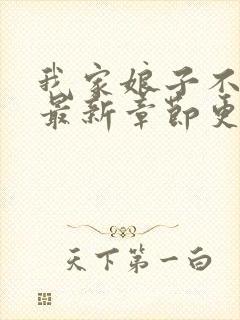 我家娘子不
最新章节更
天下第一白